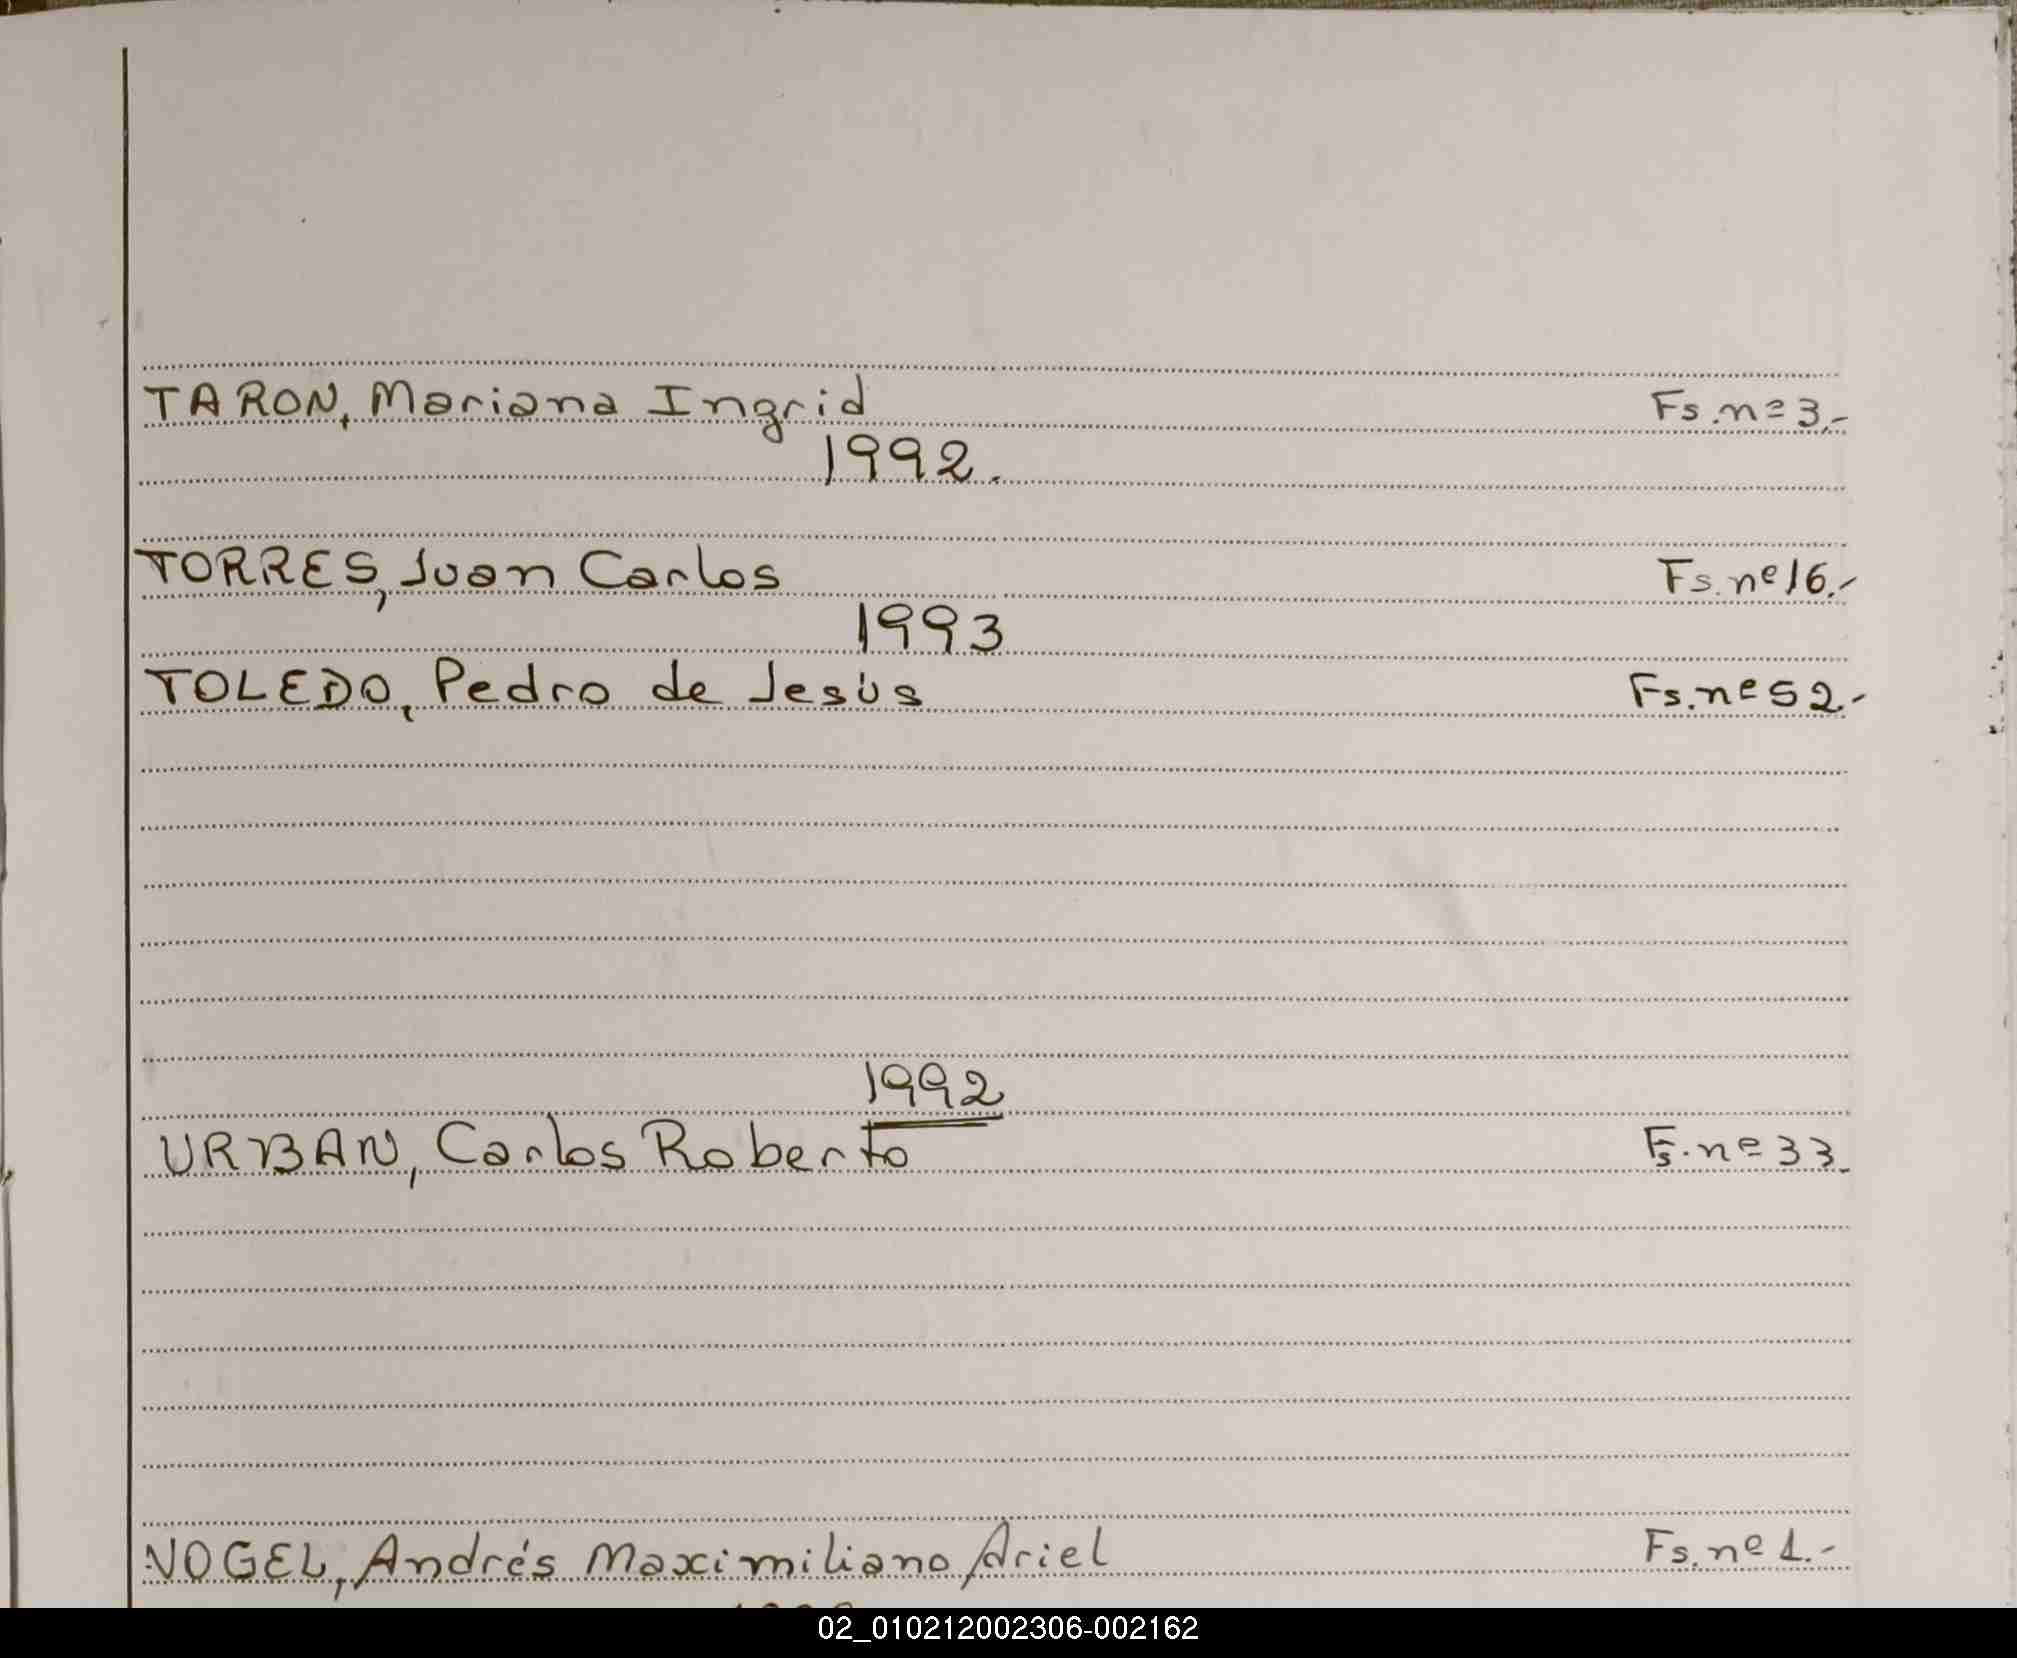 TARON, Mariana Ingrid Fs.nº3.-
1992.
TORRES, Juan Carlos Fs.nº16.-
1993
TOLEDO, Pedro de Jesús Fs.nº52.-
1992
URBAN, Carlos Roberto Fs.nº33.
VOGEL, Andrés Maximiliano Ariel Fs.nº1.-
02_010212002306-002162